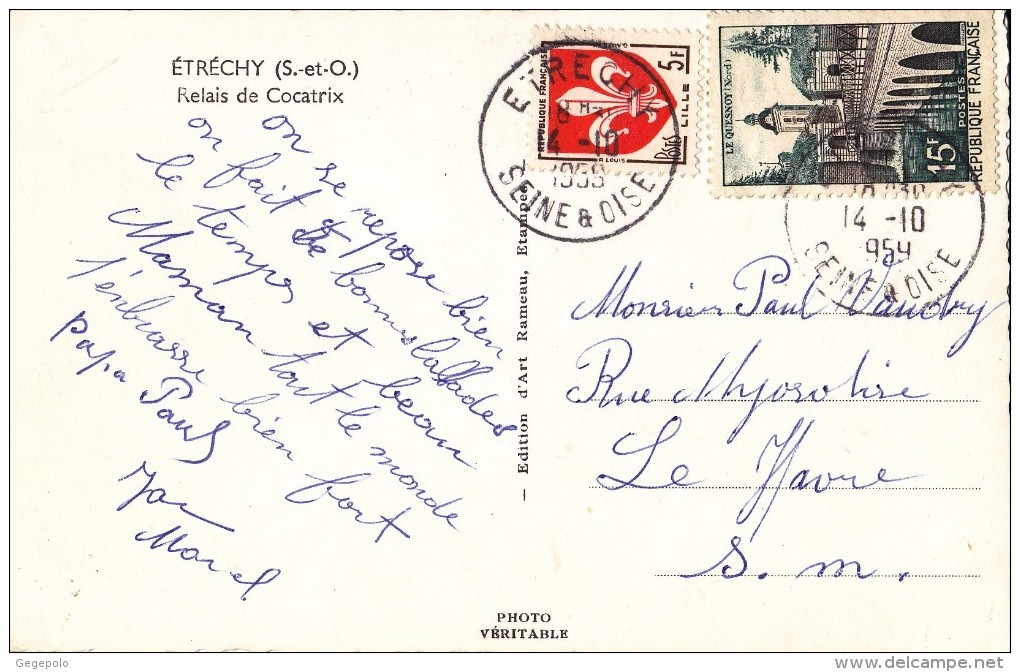 ÉTRÉCHY (S.-et-O.)
Relais de Cocatrix
on se repose bien
on fait de bonnes ballades
le temps est beau
Maman tout le monde
t'embrasse bien fort
papa Paul
Marcel
— Edition d'Art Rameau, Etampes
PHOTO
VÉRITABLE
REPUBLIQUE FRANÇAISE
5F
LILLE
POSTES
ETRECHY
14 -10
1959
SEINE & OISE
LE QUESNOY (Nord)
15F
POSTES
REPUBLIQUE FRANÇAISE
14 -10
1959
SEINE & OISE
Monsieur Paul Vaudry
Rue Myosotise
Le Havre
S. m.
Gegepolo
www.delcampe.net